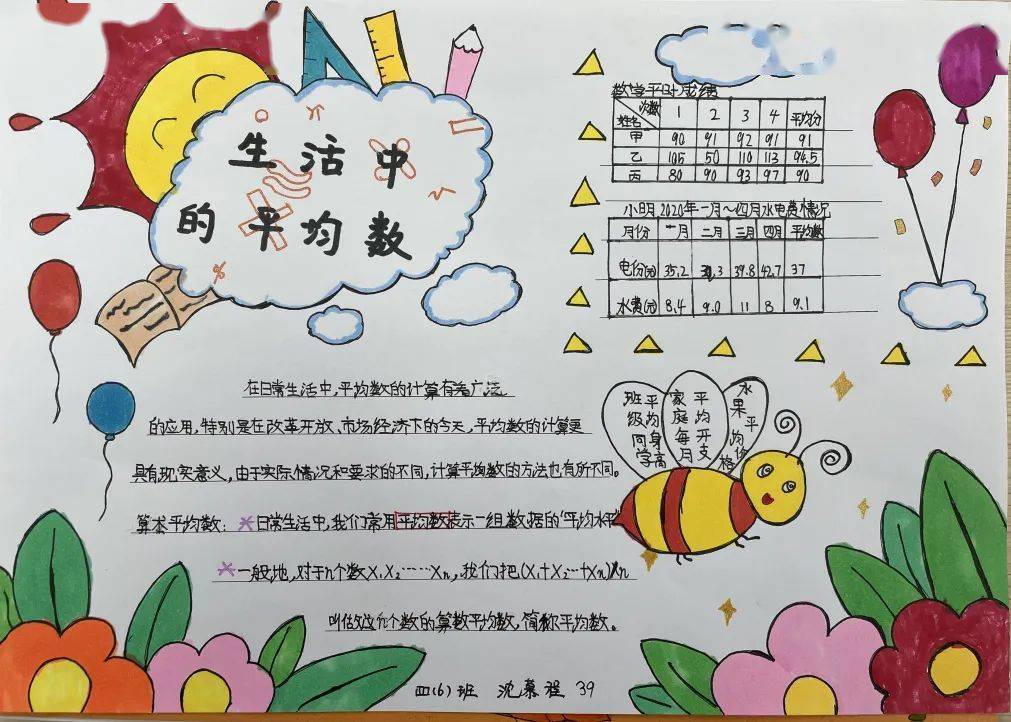 生活中
的平均数
数学平时成绩
次数 姓名 1 2 3 4 平均分
甲 90 91 92 91 91
乙 105 50 110 113 94.5
丙 80 90 93 97 90
小明2020年一月~四月水电费情况
月份 一月 二月 三月 四月 平均数
电份(元) 35.2 39.8 42.7 37
水费(元) 8.4 9.0 11 8 9.1
在日常生活中,平均数的计算有着广泛
的应用,特别是在改革开放、市场经济下的今天,平均数的计算更
具有现实意义,由于实际情况和要求的不同,计算平均数的方法也有所不同。
算术平均数: *日常生活中,我们常用平均数表示一组数据的"平均水平
*一般地,对于n个数X₁X₂……Xn,我们把(X₁+X₂…+Xn)/n
叫做这几个数的算数平均数,简称平均数。
班级同学
平均身高
家庭每月
平均开支
水果平均价格
四(6)班 沈慕程 39
%